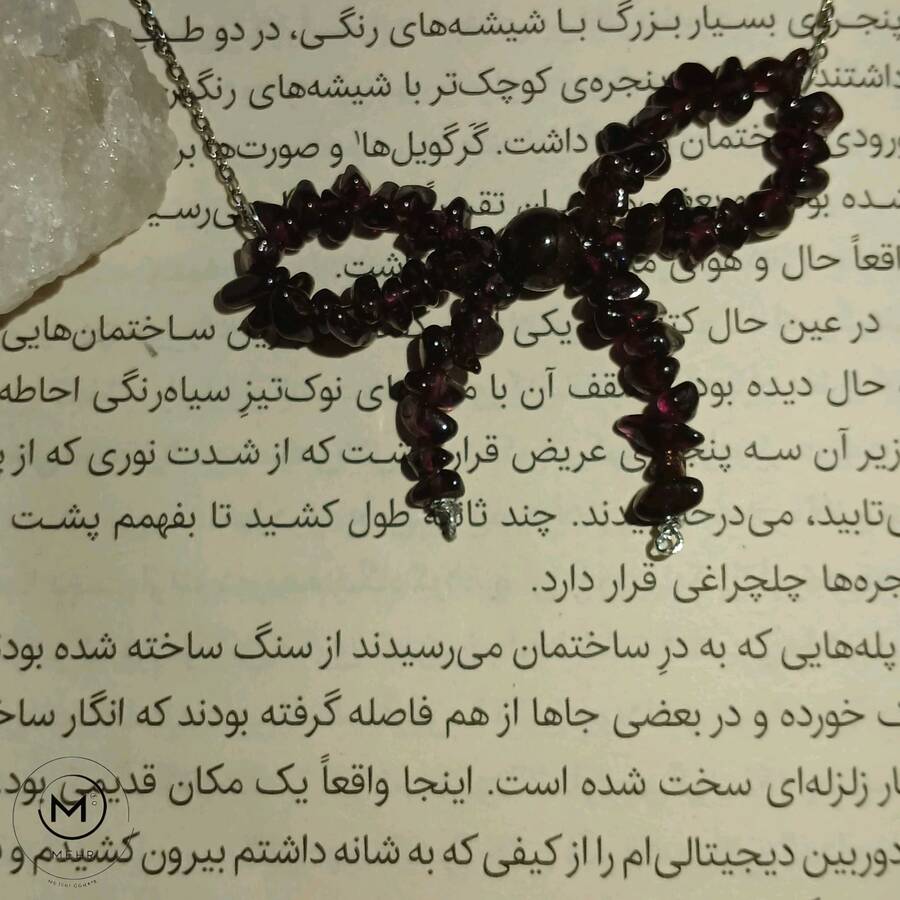 پنجره‌ی بسیار بزرگ با شیشه‌های رنگی، در دو طرف
داشتند پنجره‌ی کوچک‌تر با شیشه‌های رنگی
ورودی ساختمان داشت. گَرگویل‌ها۱ و صورت‌ها
شده این
واقعاً حال و هوای داشت.
در عین حال یکی ساختمان‌هایی
حال دیده بودم سقف آن با نوک‌تیزِ سیاه‌رنگی احاطه
زیر آن سه پنجره‌ی عریض قرار داشت که از شدت نوری که از
می‌تابید، می‌درخشیدند. چند ثانیه طول کشید تا بفهمم پشت
پنجره‌ها چلچراغی قرار دارد.
پله‌هایی که به درِ ساختمان می‌رسیدند از سنگ ساخته شده بودند
خورده و در بعضی جاها از هم فاصله گرفته بودند که انگار
زلزله‌ای سخت شده است. اینجا واقعاً یک مکان قدیمی بود.
دوربین دیجیتالی‌ام را از کیفی که به شانه داشتم بیرون کشیدم و
M
MEHR